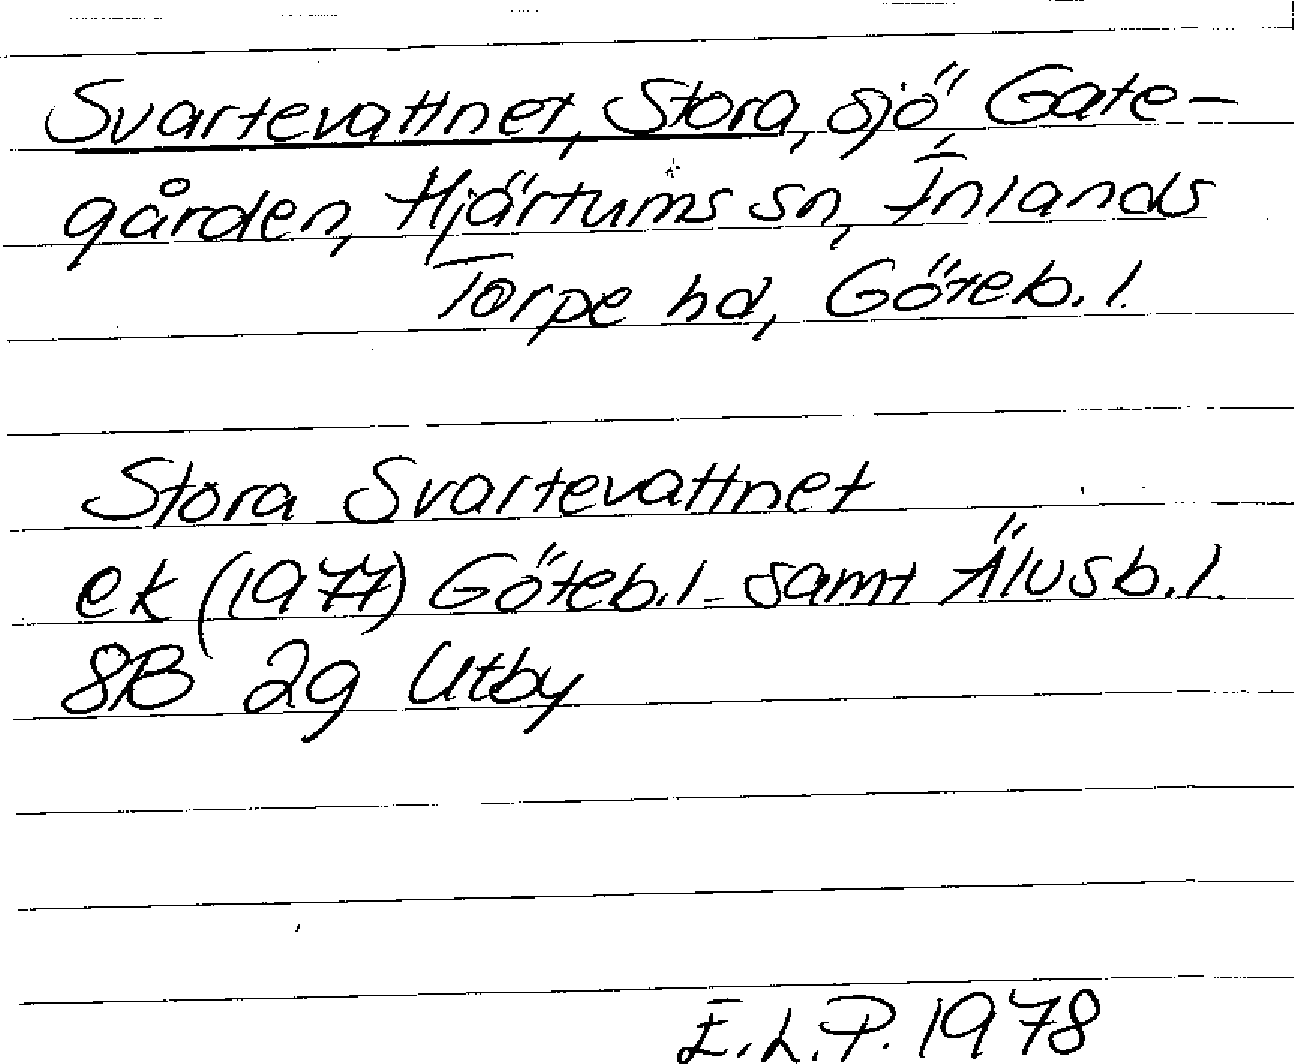 Svartevattnet, Stora, sjö, Gate-
gården, Hjärtums sn, Inlands
Torpe hd, Göteb. l.
Stora Svartevattnet
ek (1977) Göteb. l. samt Älvsb. l.
8B 2g Utby
E. L. P. 1978